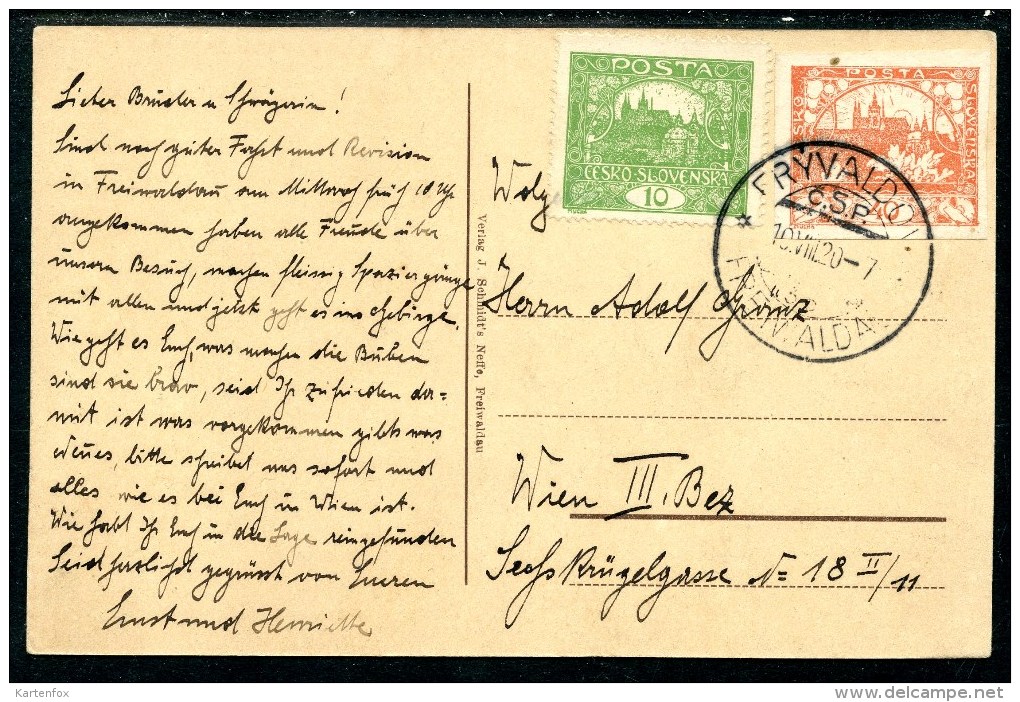 Lieber Bruder u Schwägerin!
Sind nach guter Fahrt und Revision
in Freiwaldau am Mittwoch früh 10 Uhr
angekommen haben alle Freude über
unsern Besuch, machen fleissig Spaziergänge
mit allen und jetzt geht es ins Gebirge.
Wie geht es Euch, was machen die Buben
sind sie brav, seid Ihr zufrieden da=
mit ist was vorgekommen gibts was
Neues, bitte schreibet uns sofort und
alles wie es bei Euch in Wien ist.
Wie habt Ihr Euch in die Lage reingefunden
Seid herzlichst gegrüsst von Eueren
Ernst und Henriette
Verlag J. Schmidt's Neffe, Freiwaldau
POSTA
ČESKO-SLOVENSKÁ
10
MUCHA
POSTA
SLOVENSKÁ
FRÝVALDOV
Č.S.P.
10.VIII.20-7
FREIWALDAU
Herrn Adolf
Wien III. Bez
Sechskrügelgasse N= 18 II/11
Kartenfox
delcampe.net